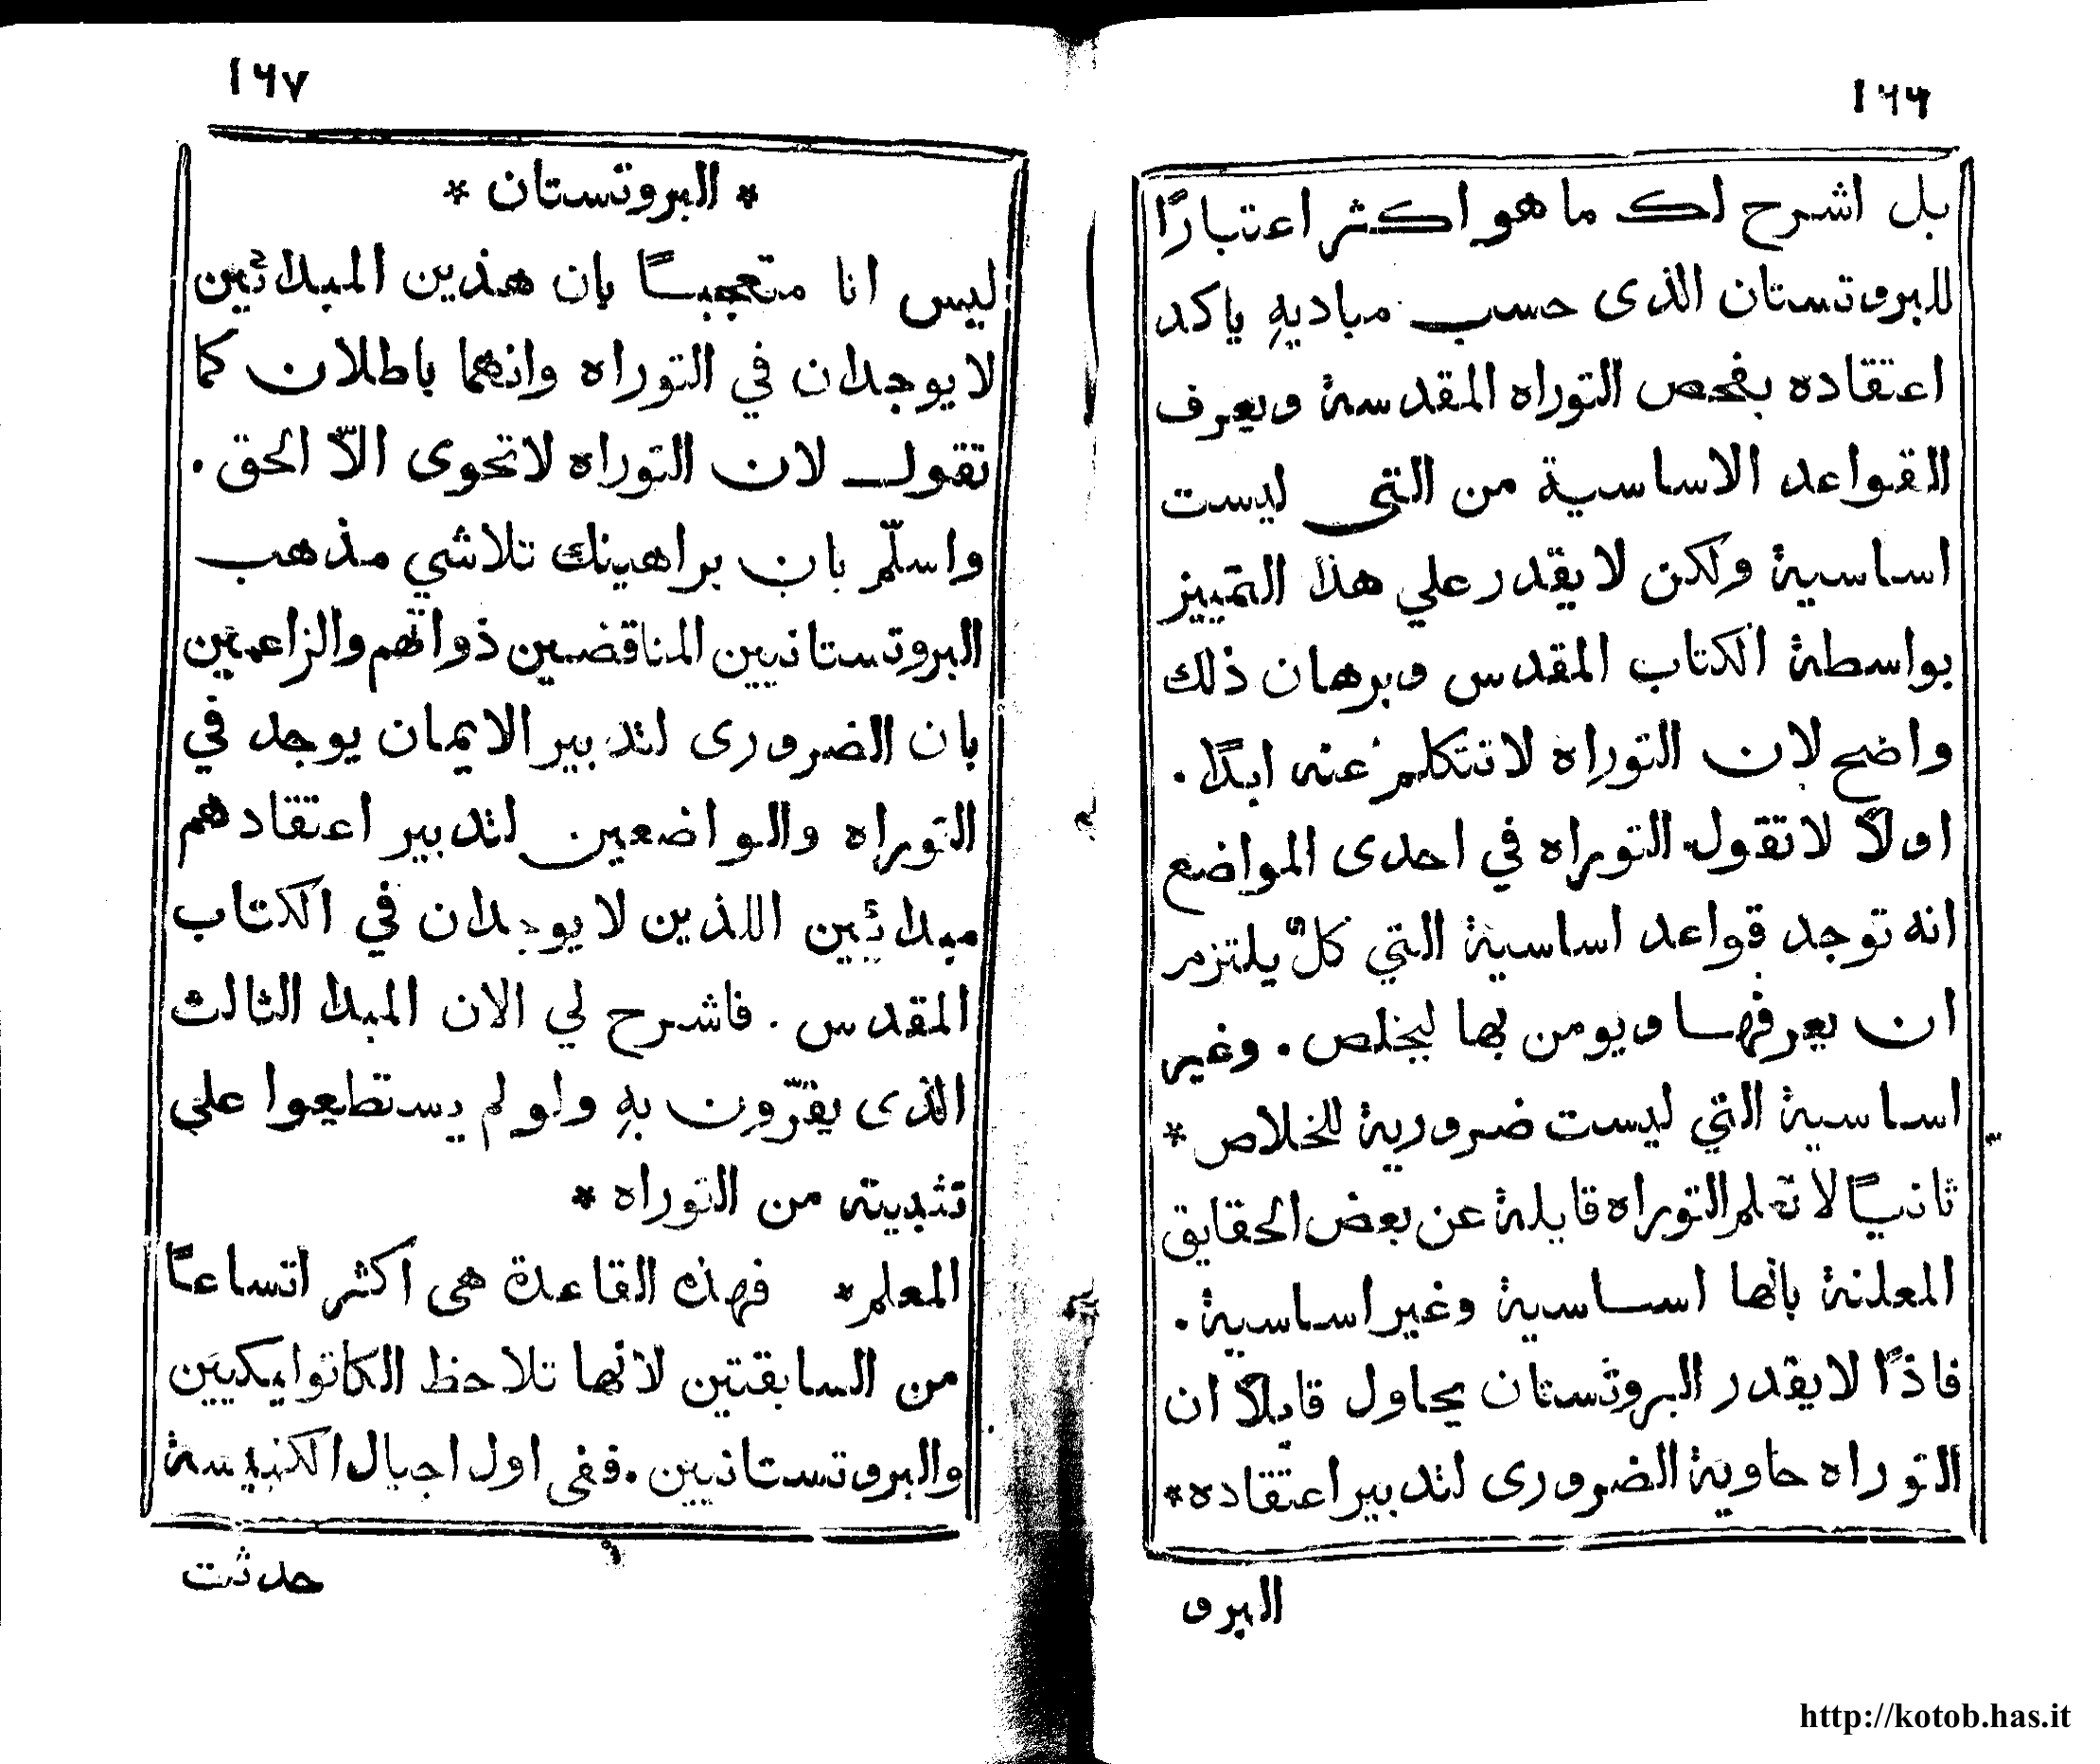 ١٦٦
بل اشرح لك ما هو اكثر اعتبارًا
للبروتستان الذى حسب مباديهِ ياكد
اعتقاده بفحص التوراه المقدسة ويعرف
القواعد الاساسية من التى ليست
اساسية ولكن لا يقدر علي هذا التمييز
بواسطة الكتاب المقدس وبرهان ذلك
واضح لان التوراه لا تتكلم عنه ابدًا .
اولاً لا تقول التوراه في احدى المواضع
انه توجد قواعد اساسية التي كلٌ يلتزم
ان يعرفها ويومن بها ليخلص . وغير
اساسية التي ليست ضرورية للخلاص *
ثانيًا لا تعلم التوراه قايلة عن بعض الحقايق
المعلنة بانها اساسية وغير اساسية .
فاذًا لا يقدر البروتستان يحاول قايلاً ان
التوراه حاوية الضرورى لتدبير اعتقاده *
البرو
١٦٧
* البروتستان *
ليس انا متعجبًا بان هذين المبدائين
لا يوجدان في التوراه وانهما باطلان كما
تقول لان التوراه لا تحوى الاّ الحق .
واسلّم بان براهينك تلاشي مذهب
البروتستانيين المناقضين ذواتهم والزاعمين
بان الضرورى لتدبير الايمان يوجد في
التوراه والواضعين لتدبير اعتقادهم
مبدائين اللذين لا يوجدان في الكتاب
المقدس . فاشرح لي الان المبدا الثالث
الذى يقرّون بهِ ولو لم يستطيعوا علي
تثبيته من التوراه *
المعلم * فهذه القاعدة هى اكثر اتساعًا
من السابقتين لانها تلاحظ الكاتوليكيين
والبروتستانيين . ففى اول اجيال الكنيسة
حدثت
http://kotob.has.it